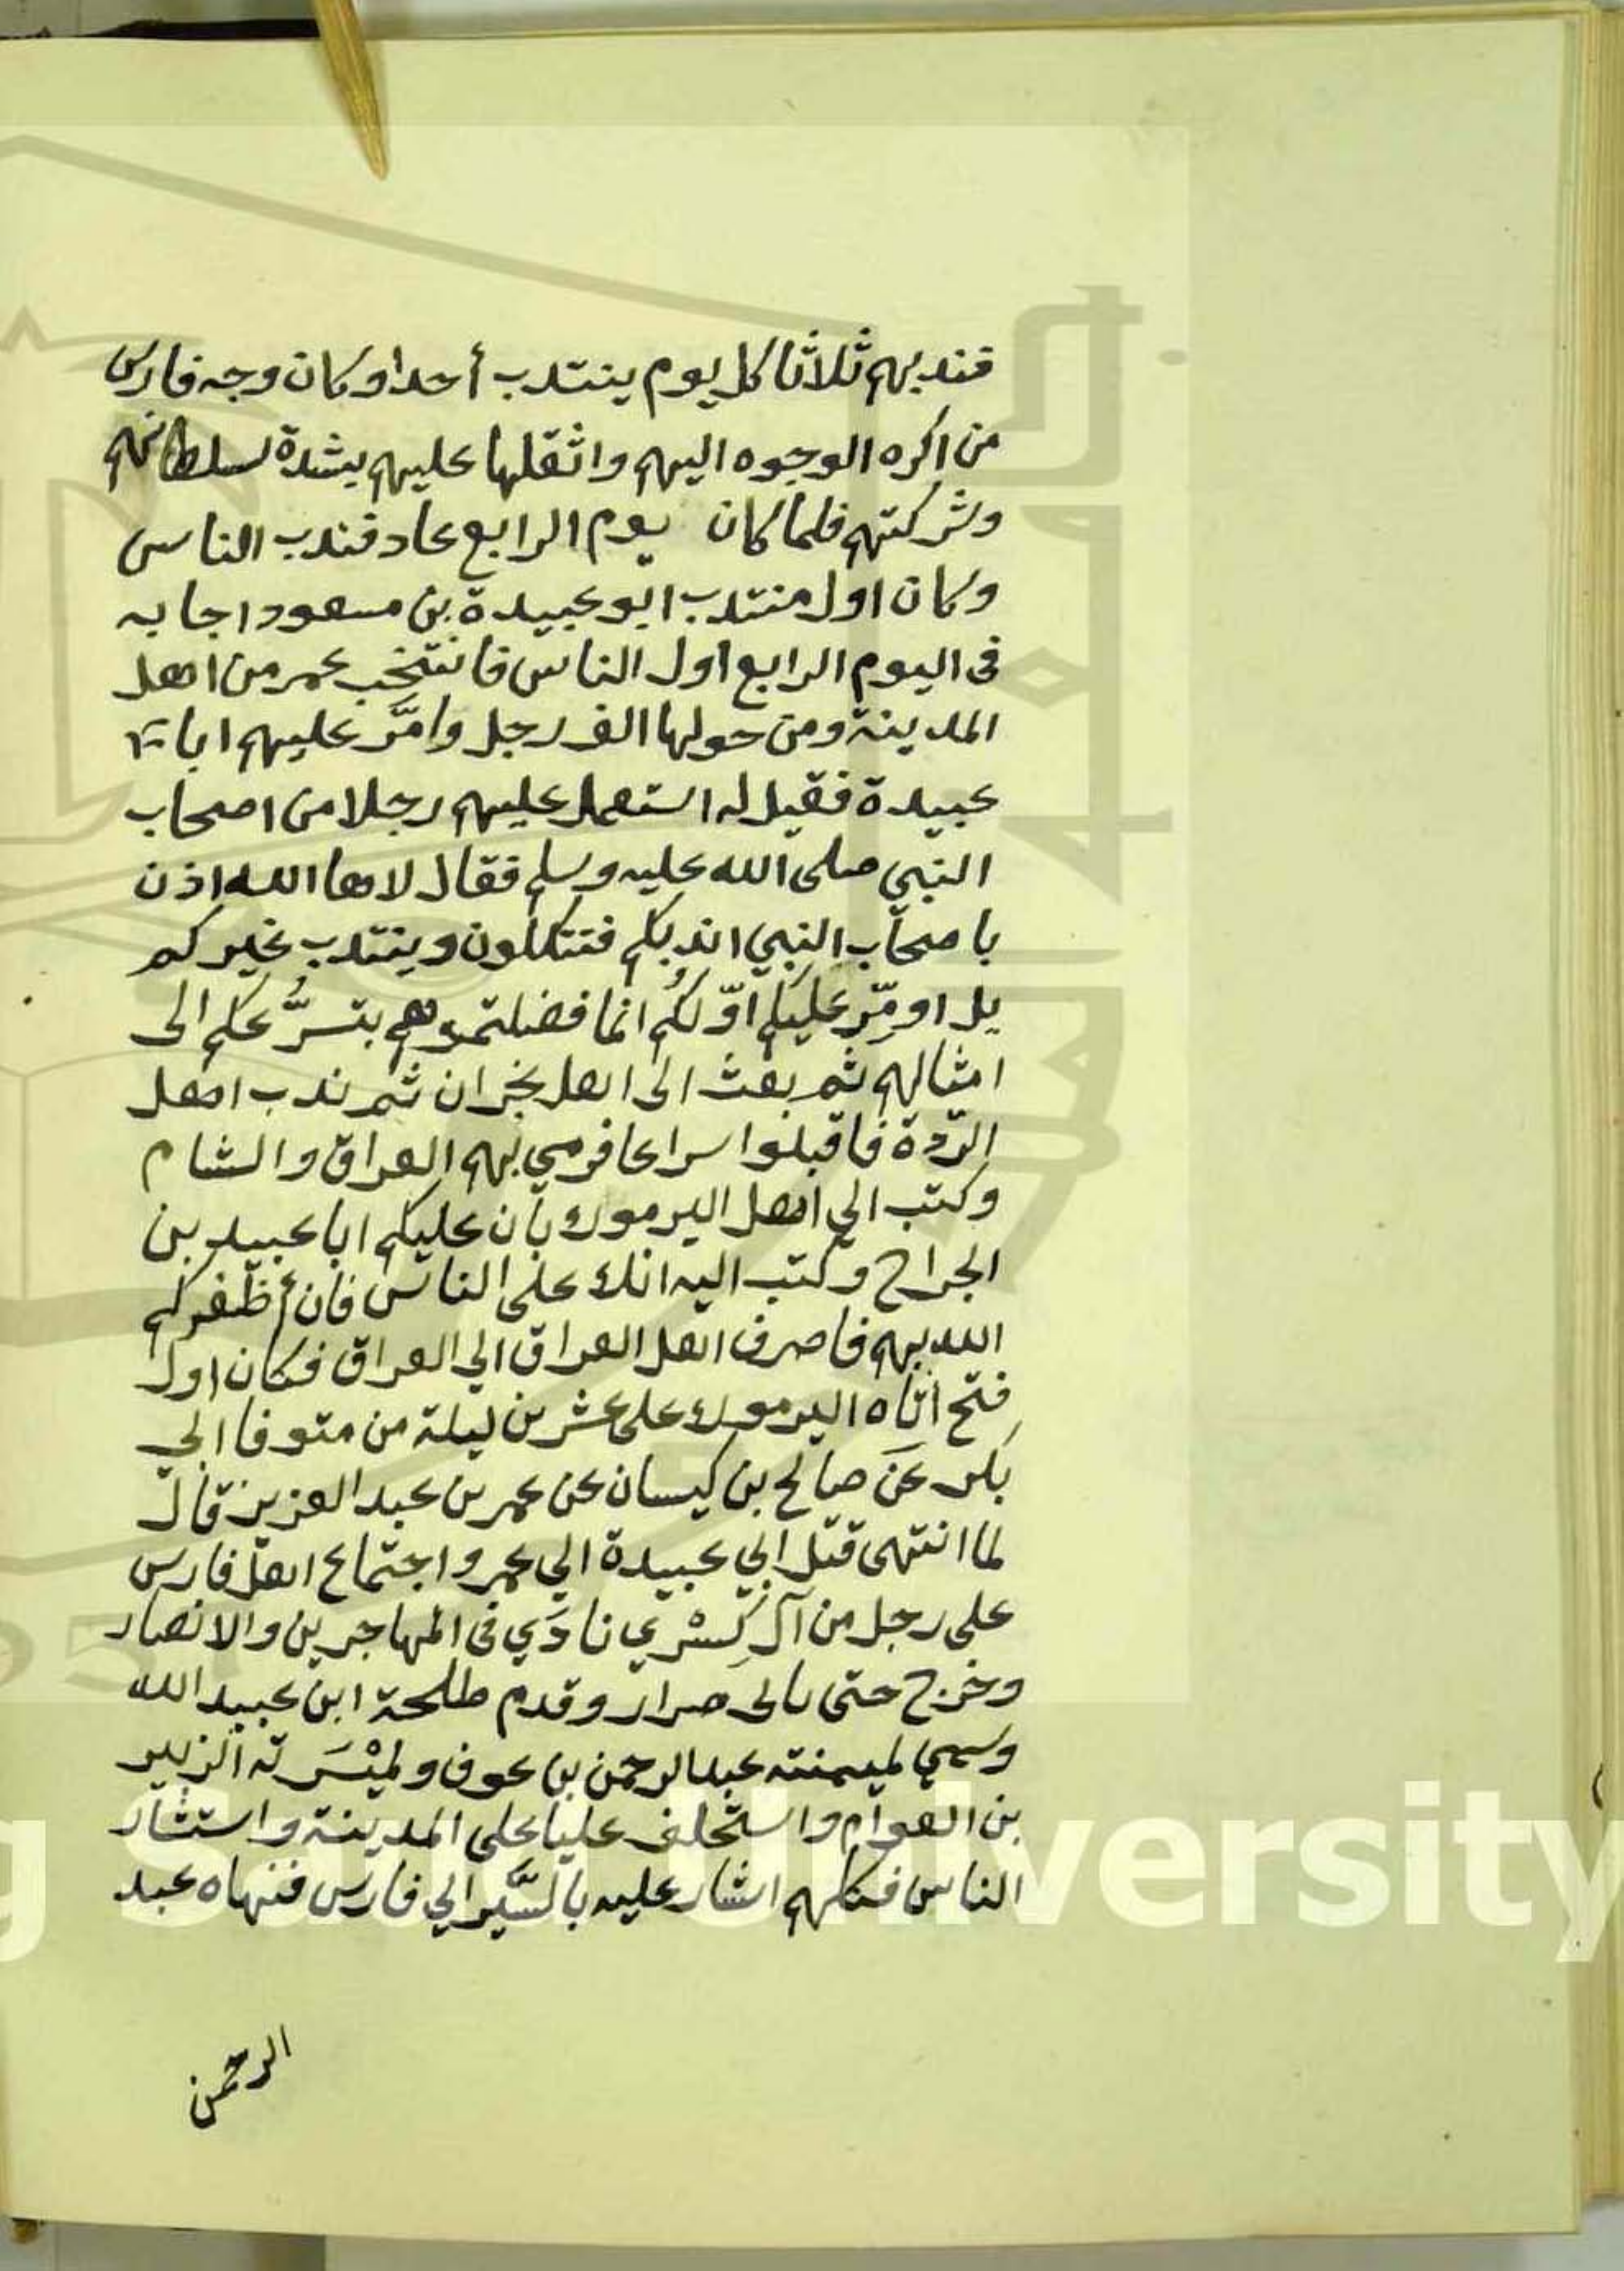 فندبهم ثلاثا كل يوم ينتدب أحدا وكان وجه فارس
من اكره الوجوه اليهم واثقلها عليهم بشدة لسلطانهم
وشركتهم فلما كان يوم الرابع عاد فندب الناس
وكان اول منتدب ابو عبيدة بن مسعود اجابه
فى اليوم الرابع اول الناس فانتخب عمر من اهل
المدينة ومن حولها الف رجل وامَّر عليهم ابا
عبيدة فقيل له استعمل عليهم رجلا من اصحاب
النبي صلى الله عليه وسلم فقال لا ها الله اذن
يا صحاب النبي اندبكم فتتكلون وينتدب غيركم
بل اومِّر عليكم اوّلكُم انما فضلتموهم بتسرُّعكم الى
امثالهم ثم بعث الى اهل نجران ثم ندب اهل
الرّدة فاقبلوا سراعا فرمي بهم العراق والشام
وكتب الي اهل اليرموك بان عليكم ابا عبيد بن
الجراح وكتب اليه انك على الناس فان أظفركم
الله بهم فاصرف اهل العراق الي العراق فكان اول
فتح اتاه اليرموك على عشرين ليلة من متوفا ابي
بكر عَن صالح بن كيسان عن عمر بن عبد العزيز قال
لما انتهى قتل ابي عبيدة الي عمر واجتماع اهل فارس
على رجل من آل كِسْري نادَي فى المهاجرين والانصار
وخرج حتى اتى صرار وقدم طلحة ابن عبيد الله
وسمي لميمنته عبد الرحمن بن عوف ولميْسَرته الزبير
بن العوام واستخلف عليا على المدينة واستشار
الناس فكلهم اشار عليه بالسَّير الي فارس فنهاه عبد
الرحمن
King Saud University